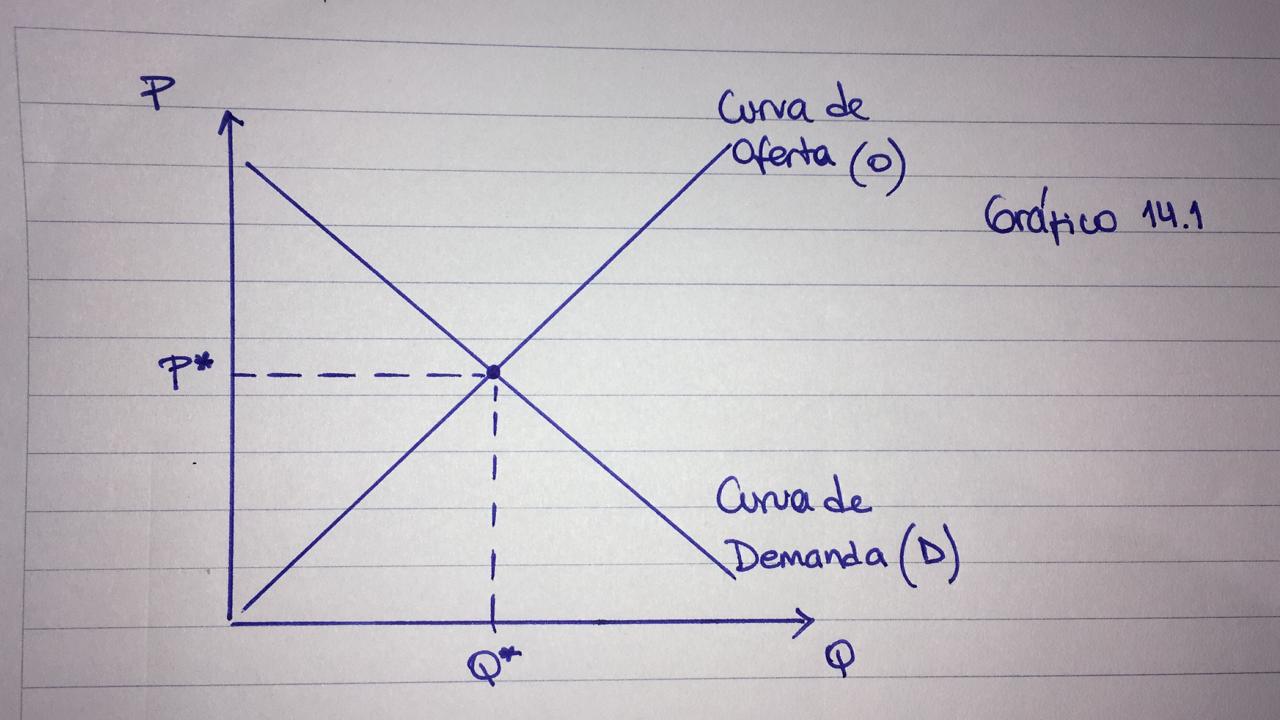 P
Curva de
Oferta (O)
Gráfico 14.1
P*
Curva de
Demanda (D)
Q*
Q